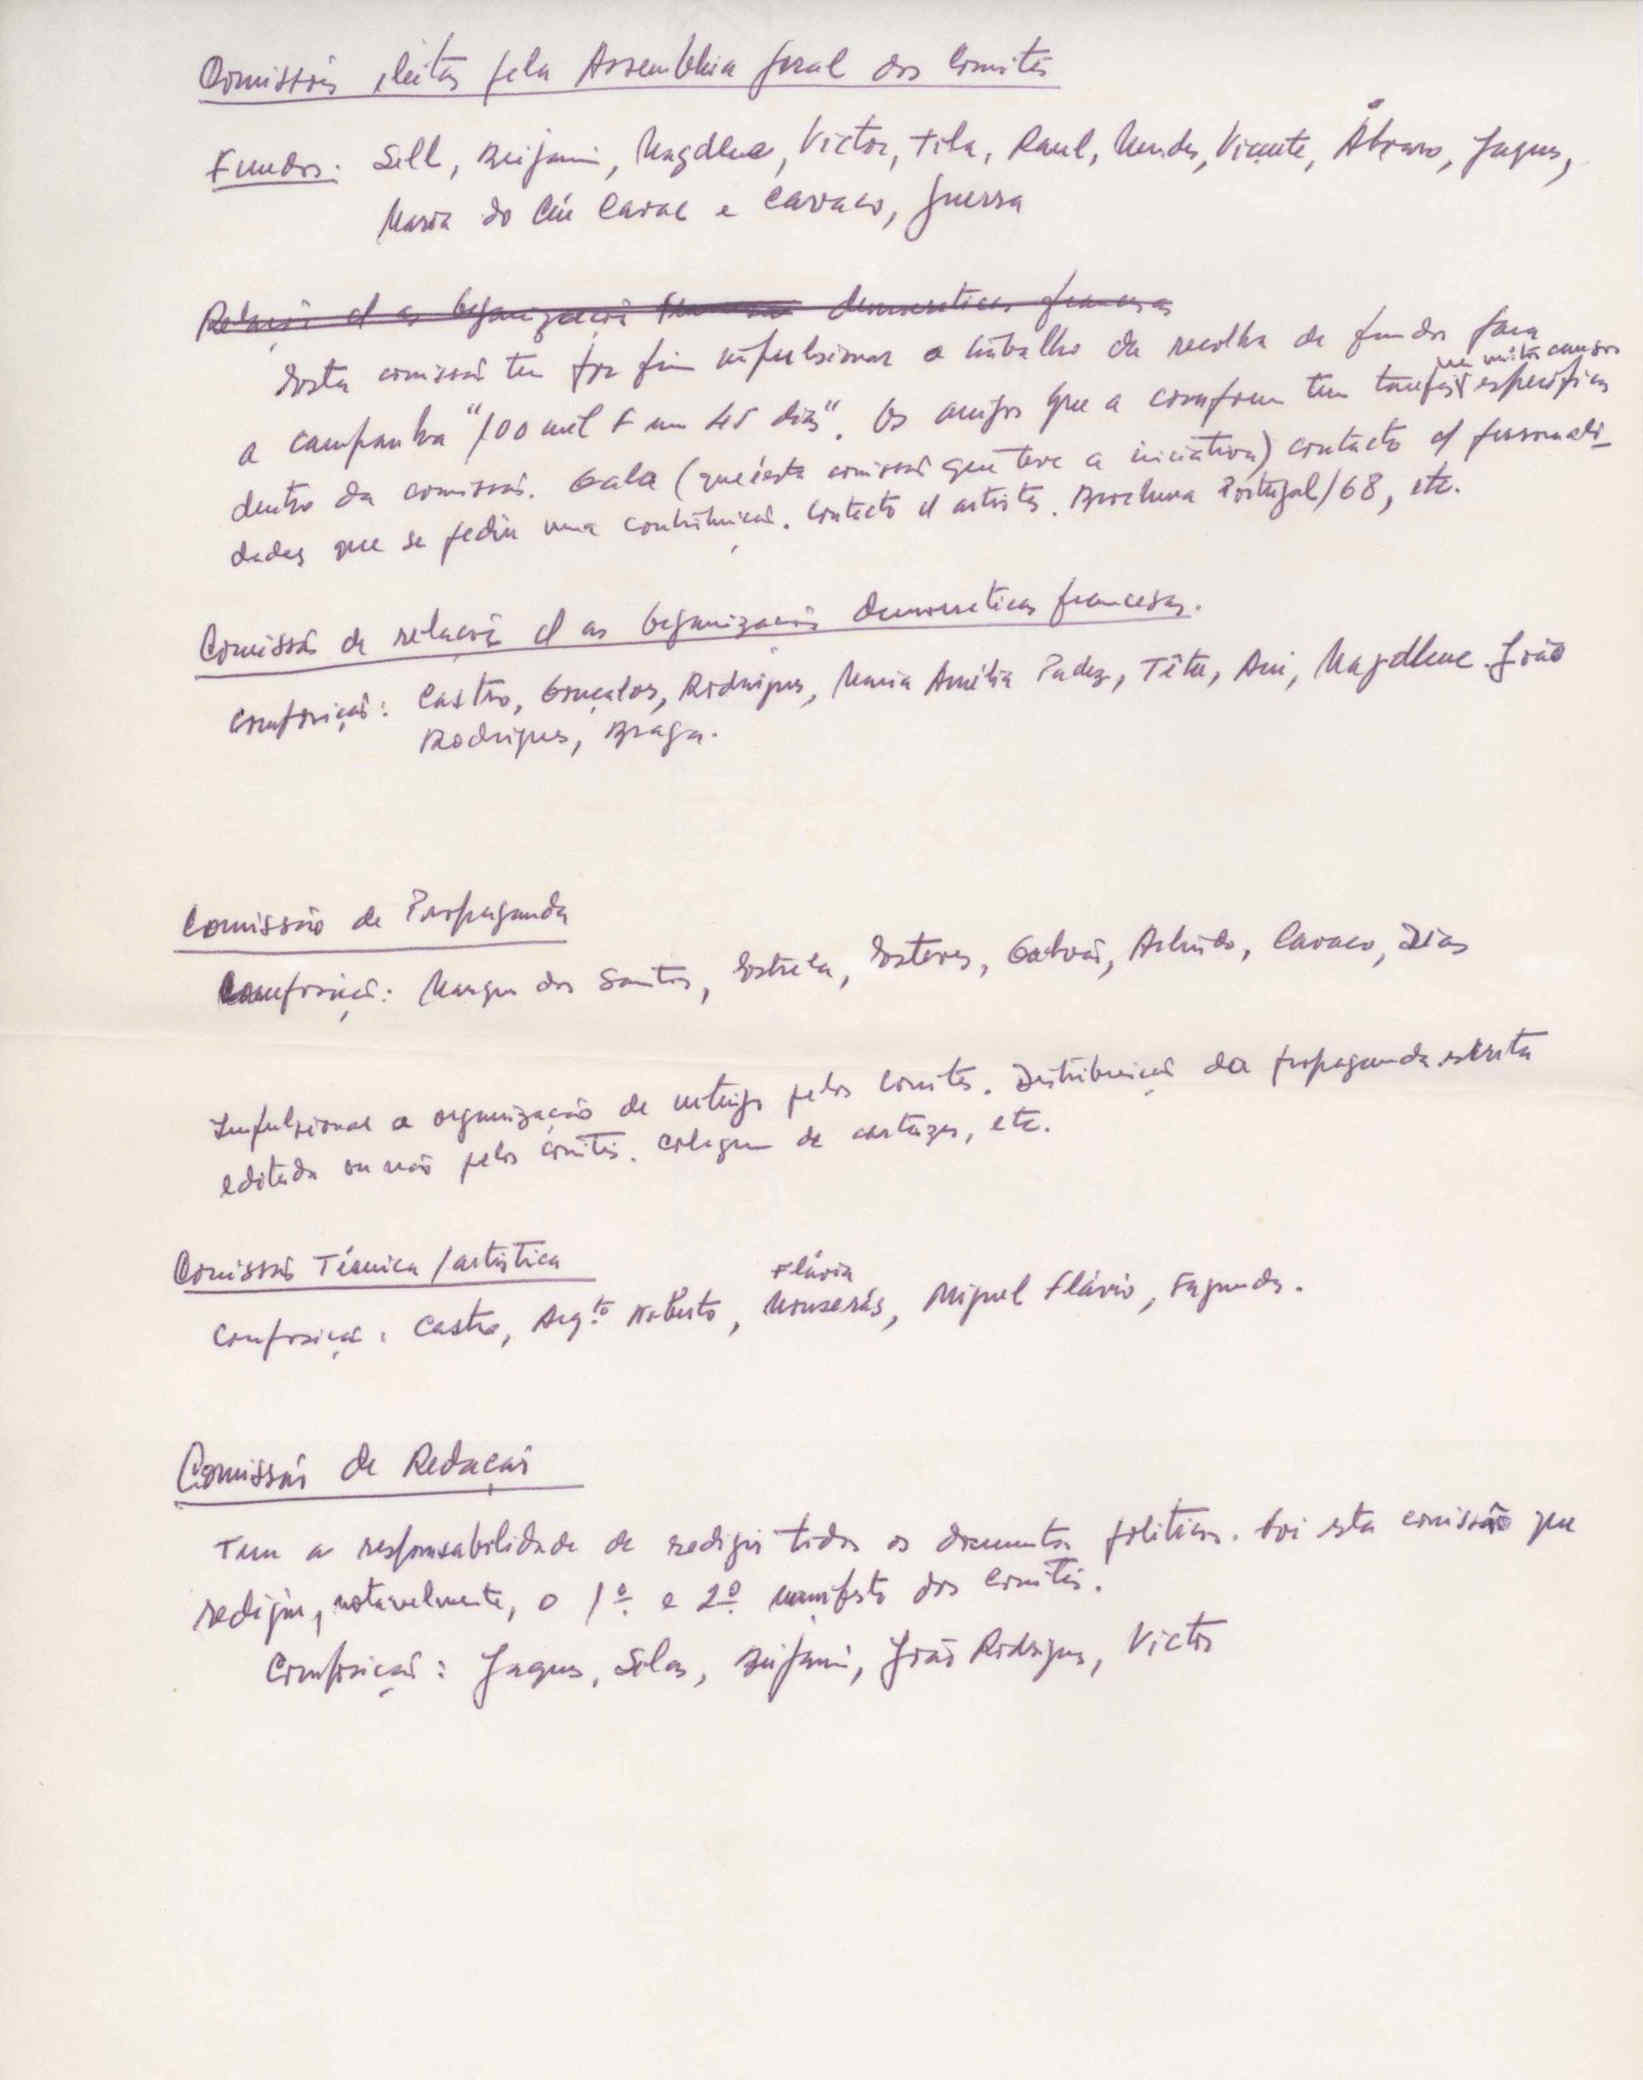 Comissões eleitas pela Assembleia geral dos Comités
Fundos: Sell, Benjamin, Magdlene, Victor, Tila, Raul, Mendes, Vicente, Álvaro, Jaques,
Maria do Céu e Cavaco, Guerra
Relações c/ as organizações democraticas francesas
Esta comissão tem por fim impulsionar o trabalho da recolha de fundos para
a campanha "100 mil F em 45 dias". Os amigos que a compoem tem tarefas em muitos casos especificas
dentro da comissão. Gala (que é esta comissão quem teve a iniciativa) contacto c/ personali-
dades que se pediu uma contribuição. Contacto c/ artistas. Brochura Portugal/68, etc.
Comissão de relações c/ as organizações democraticas francesas.
Composição: Castro, Gonçalves, Rodrigues, Maria Amélia Padez, Téte, Ani, Magdlene. João
Rodrigues, Braga.
Comissão de Propaganda
Composição: Marques dos Santos, Estrela, Esteves, Galvão, Arlindo, Cavaco, Dias
Impulsionar a organização de meetings pelos Comités. Distribuição da propaganda escrita
editada ou não pelos comités. Colagem de cartazes, etc.
Comissão Técnica/artistica
Flávia
Composição: Castro, Arqto Roberto, Monserás, Miguel Flávio, Fagundes.
Comissão de Redacção
Tem a responsabilidade de redigir todos os documentos politicos. Foi esta comissão que
redigiu, notavelmente, o 1º e 2º manifesto dos Comités.
Composição: Jaques, Silas, Benjamin, João Rodrigues, Victor